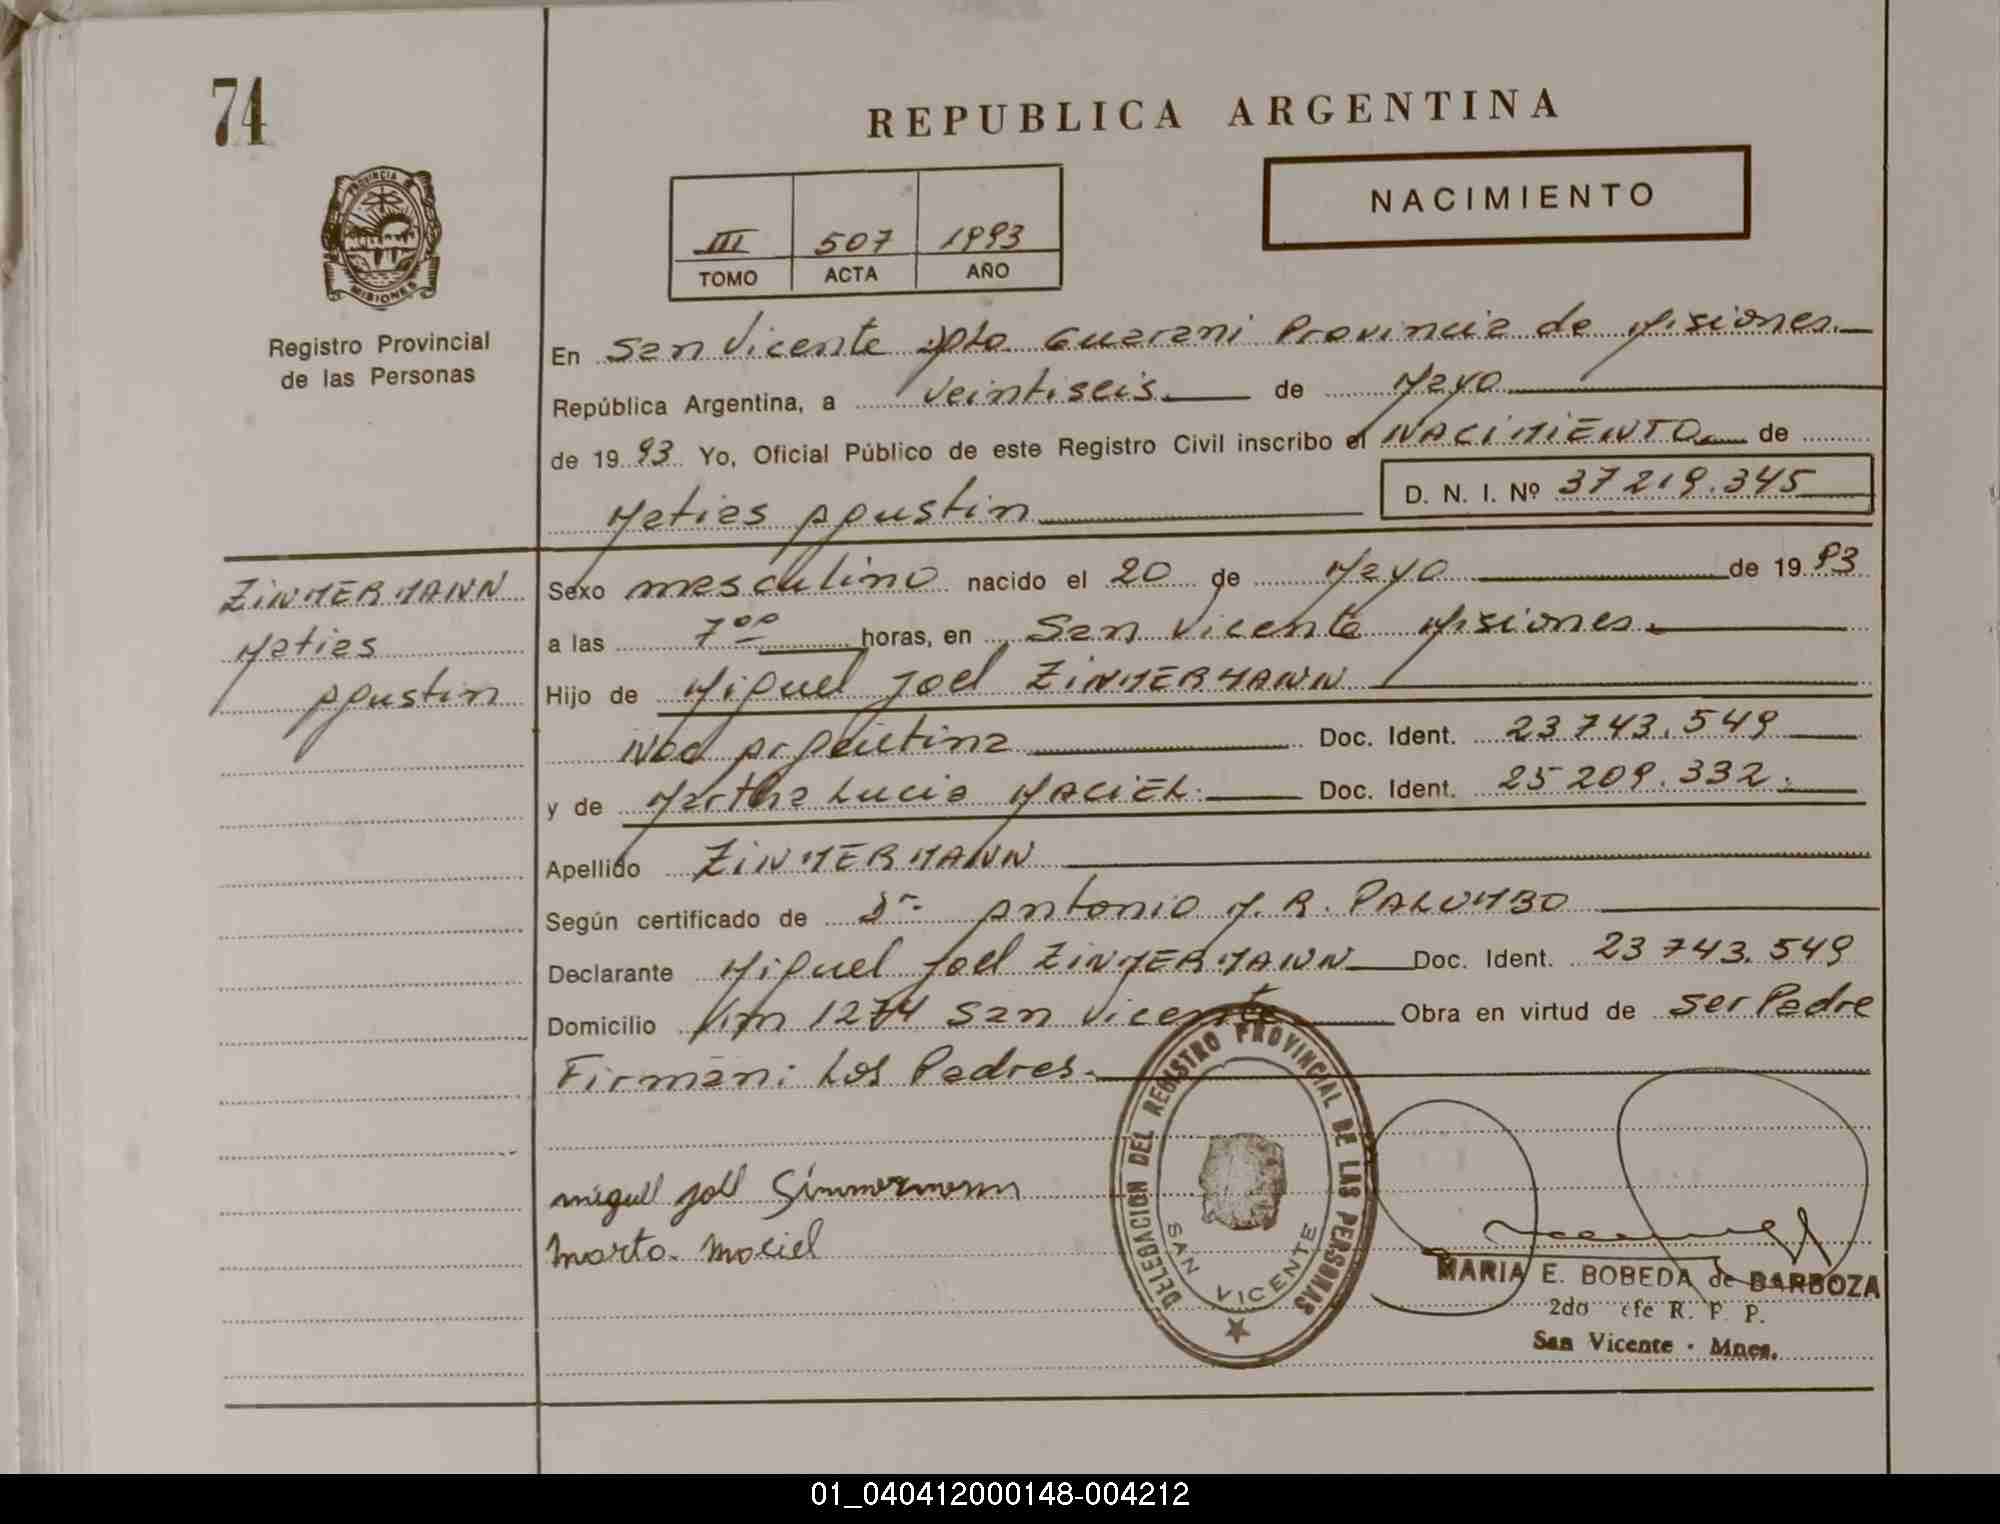 74
REPUBLICA ARGENTINA
NACIMIENTO
PROVINCIA
MISIONES
Registro Provincial
de las Personas
III 507 1993
TOMO ACTA AÑO
En San Vicente Dpto Guarani Provincia de Misiones
República Argentina, a veintiseis de Mayo
de 1993 Yo, Oficial Público de este Registro Civil inscribo el NACIMIENTO de
Matias Agustin D. N. I. Nº 37219.345
ZIMMERMANN
Matias
Agustin
Sexo masculino nacido el 20 de Mayo de 1993
a las 7 00 horas, en San Vicente Misiones
Hijo de Miguel Joel ZIMMERMANN
Nac Argentina Doc. Ident. 23743.549
y de Martha Lucia MACIEL. Doc. Ident. 25209.332.
Apellido ZIMMERMANN
Según certificado de Dr. Antonio M. R. PALUMBO
Declarante Miguel Joel ZIMMERMANN Doc. Ident. 23743.549
Domicilio Km 1274 San Vicente Obra en virtud de ser Padre
Firman: Los Padres.
miguel joel Simmermann
Marta Maciel
DELEGACION DEL REGISTRO PROVINCIAL DE LAS PERSONAS
SAN VICENTE
MARIA E. BOBEDA de BARBOZA
2do R. P. P.
San Vicente - Mnes.
01_040412000148-004212